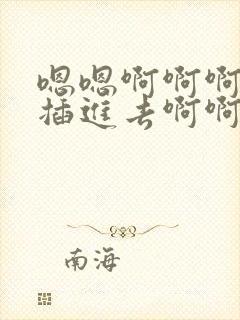 嗯嗯啊啊啊
插进去啊啊
南海